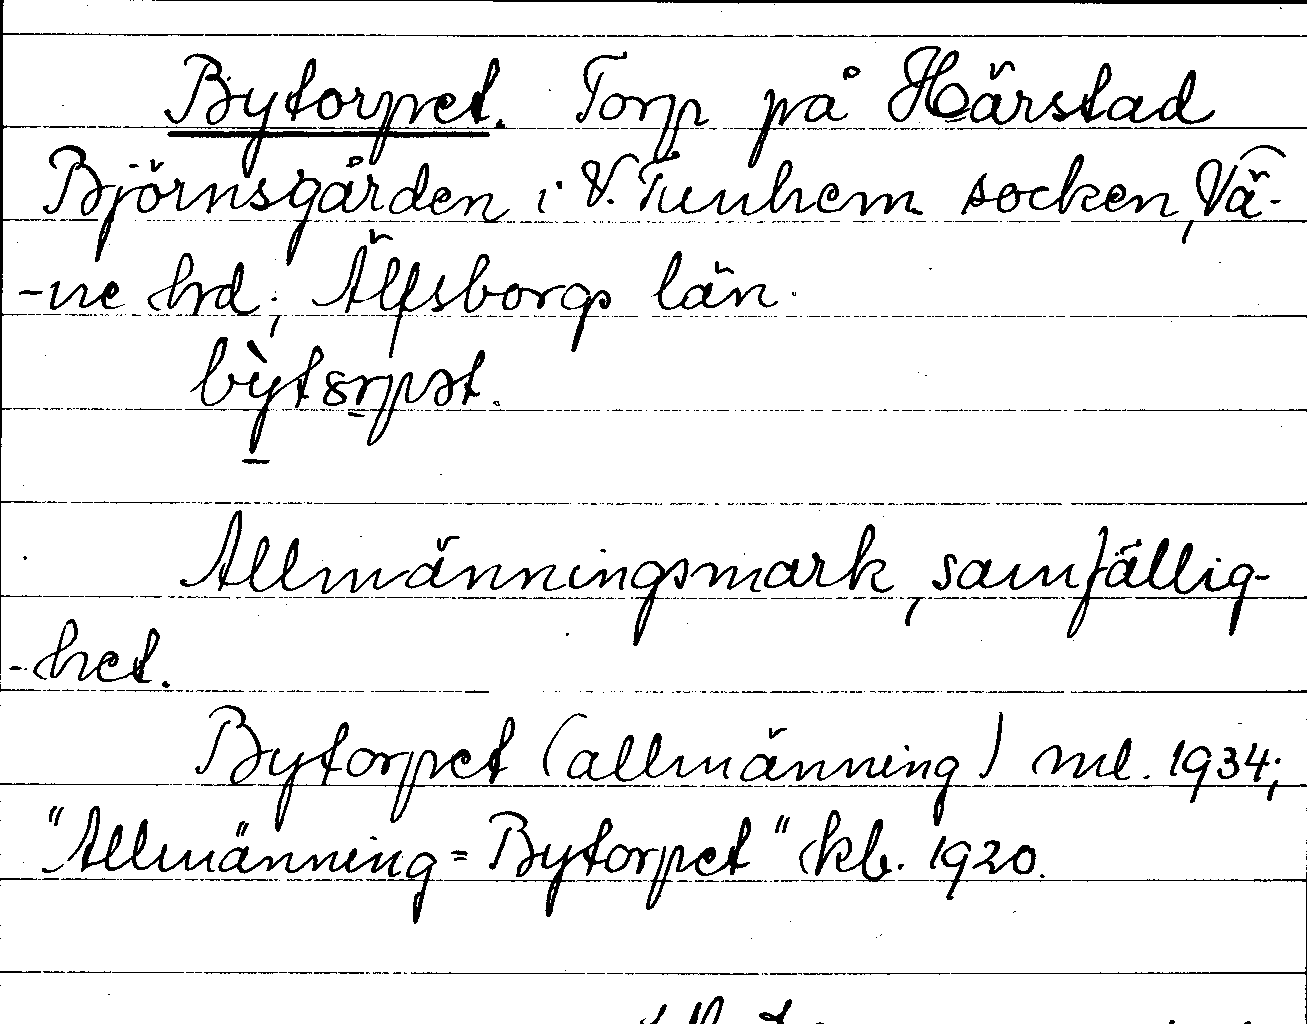 Bytorpet. Torp på Härstad
Björnsgården i V. Tunhem socken, Vä-
-ne hrd, Älfsborgs län.
bỳtɞrpət.
Allmänningsmark, samfällig-
-het.
Bytorpet (allmänning) ml. 1934;
"Allmänning = Bytorpet" kb. 1920.